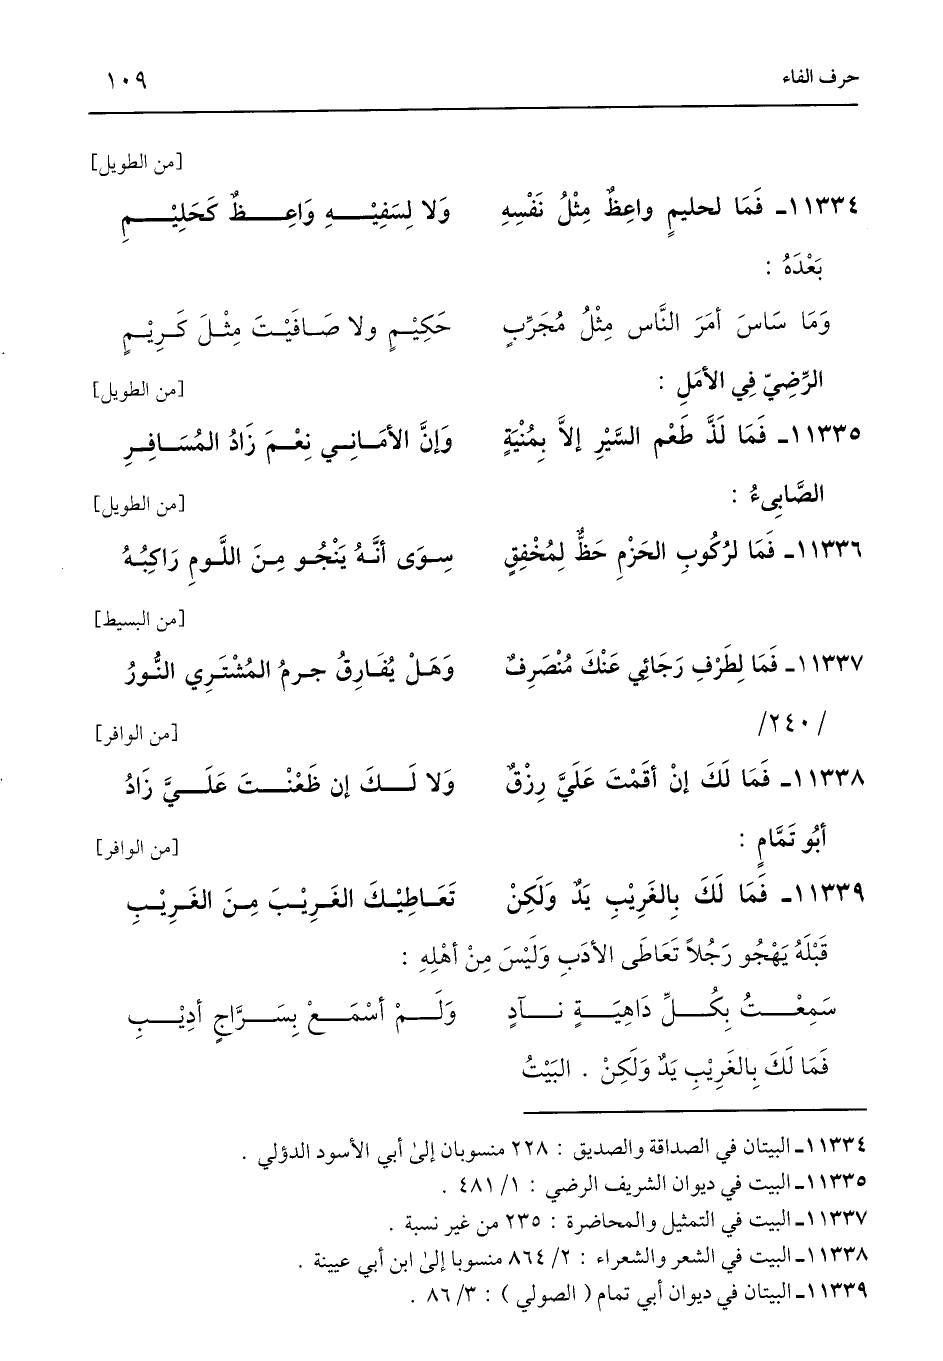 حرف الفاء ١٠٩
[من الطويل]
١١٣٣٤ـ فَمَا لحليمٍ واعِظٌ مِثْلُ نَفْسِهِ وَلا لِسَفِيْـــهِ وَاعِـــظٌ كَحَلِيْـــمِ
بَعْدَهُ :
وَمَا سَاسَ أمَرَ النَّاس مِثْلُ مُجَرِّبٍ حَكِيْـمٍ ولا صَـافَيْـتَ مِثْـلَ كَـرِيْـمٍ
الرَّضِيّ فِي الأمَلِ : [من الطويل]
١١٣٣٥ـ فَمَا لَذَّ طَعْم السَّيْرِ إلاَّ بِمُنْيَةٍ وَإنَّ الأمَـانِـي نِعْـمَ زَادُ المُسَـافِـرِ
الصَّابىءُ : [من الطويل]
١١٣٣٦ـ فَمَا لرُكُوبِ الحَزْمِ حَظٌّ لِمُخْفِقٍ سِوَى أنَّـهُ يَنْجُـو مِـنَ اللَّـومِ رَاكِبُـهُ
[من البسيط]
١١٣٣٧ـ فَمَا لِطَرْفِ رَجَائِي عَنْكَ مُنْصَرِفٌ وَهَـلْ يُفَـارِقُ جـرمُ المُشْتَـرِي النُّـورُ
/٢٤٠/
[من الوافر]
١١٣٣٨ـ فَمَا لَكَ إنْ أقَمْتَ عَلَيَّ رِزْقٌ وَلا لَـــكَ إن ظَعْنْـــتَ عَلَـــيَّ زَادُ
أبُو تَمَّامٍ : [من الوافر]
١١٣٣٩ـ فَمَا لَكَ بِالغَرِيْبِ يَدٌ وَلَكِنْ تَعَـاطِيْـكَ الغَـرِيْـبَ مِـنَ الغَـرِيْـبِ
قَبْلَهُ يَهْجُو رَجُلاً تَعَاطَى الأدَبِ وَلَيْسَ مِنْ أهْلِهِ :
سَمِعْـــتُ بِكُـــلِّ دَاهِيَـــةٍ نَـــآدٍ وَلَـــمْ أسْمَـــعْ بِسَـــرَّاجٍ أدِيْـــبِ
فَمَا لَكَ بِالغَرِيْبِ يَدٌ وَلَكِنْ . البَيْتُ
١١٣٣٤ـ البيتان في الصداقة والصديق : ٢٢٨ منسوبان إلىٰ أبي الأسود الدؤلي .
١١٣٣٥ـ البيت في ديوان الشريف الرضي : ١/ ٤٨١ .
١١٣٣٧ـ البيت في التمثيل والمحاضرة : ٢٣٥ من غير نسبة .
١١٣٣٨ـ البيت في الشعر والشعراء : ٢/ ٨٦٤ منسوبا إلىٰ ابن أبي عيينة .
١١٣٣٩ـ البيتان في ديوان أبي تمام ( الصولي ) : ٣/ ٨٦ .